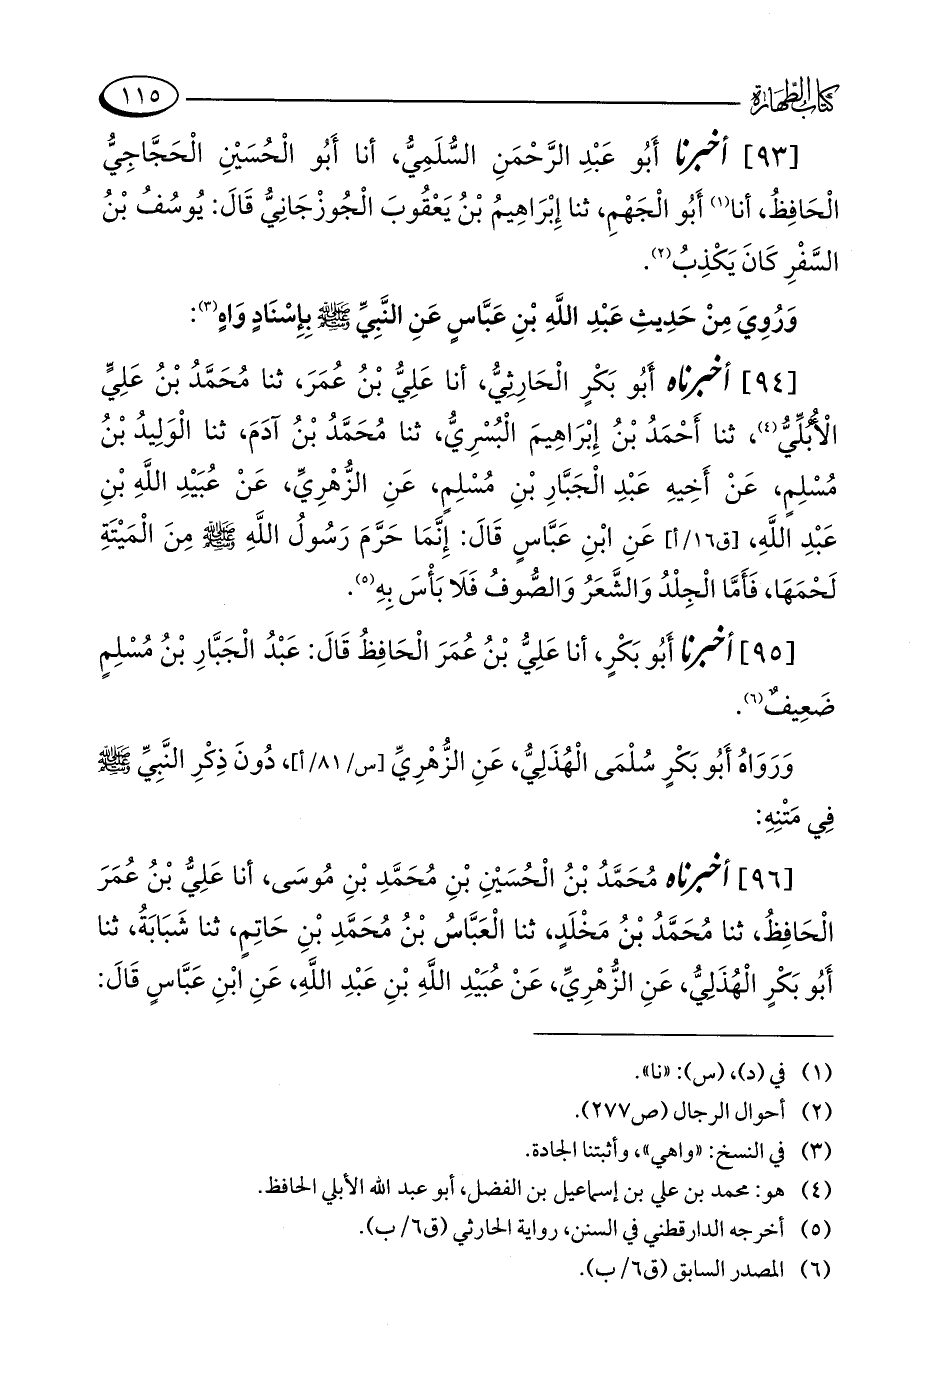 كتاب الطهارة ١١٥
[٩٣] أخبرنا أَبُو عَبْدِ الرَّحْمَنِ السُّلَمِيُّ، أنا أَبُو الْحُسَيْنِ الْحَجَّاجِيُّ
الْحَافِظُ، أنا(١) أَبُو الْجَهْمِ، ثنا إِبْرَاهِيمُ بْنُ يَعْقُوبَ الْجُوزْجَانِيُّ قَالَ: يُوسُفُ بْنُ
السَّفْرِ كَانَ يَكْذِبُ(٢).
وَرُوِيَ مِنْ حَدِيثِ عَبْدِ اللَّهِ بْنِ عَبَّاسٍ عَنِ النَّبِيِّ ﷺ بِإِسْنَادٍ وَاهٍ(٣):
[٩٤] أخبرناه أَبُو بَكْرٍ الْحَارِثِيُّ، أنا عَلِيُّ بْنُ عُمَرَ، ثنا مُحَمَّدُ بْنُ عَلِيٍّ
الْأُبُلِّيُّ(٤)، ثنا أَحْمَدُ بْنُ إِبْرَاهِيمَ الْبُسْرِيُّ، ثنا مُحَمَّدُ بْنُ آدَمَ، ثنا الْوَلِيدُ بْنُ
مُسْلِمٍ، عَنْ أَخِيهِ عَبْدِ الْجَبَّارِ بْنِ مُسْلِمٍ، عَنِ الزُّهْرِيِّ، عَنْ عُبَيْدِ اللَّهِ بْنِ
عَبْدِ اللَّهِ، [ق١٦/أ] عَنِ ابْنِ عَبَّاسٍ قَالَ: إِنَّمَا حَرَّمَ رَسُولُ اللَّهِ ﷺ مِنَ الْمَيْتَةِ
لَحْمَهَا، فَأَمَّا الْجِلْدُ وَالشَّعَرُ وَالصُّوفُ فَلَا بَأْسَ بِهِ(٥).
[٩٥] أخبرنا أَبُو بَكْرٍ، أنا عَلِيُّ بْنُ عُمَرَ الْحَافِظُ قَالَ: عَبْدُ الْجَبَّارِ بْنُ مُسْلِمٍ
ضَعِيفٌ(٦).
وَرَوَاهُ أَبُو بَكْرٍ سُلْمَى الْهُذَلِيُّ، عَنِ الزُّهْرِيِّ [س/٨١/أ]، دُونَ ذِكْرِ النَّبِيِّ ﷺ
فِي مَتْنِهِ:
[٩٦] أخبرناه مُحَمَّدُ بْنُ الْحُسَيْنِ بْنِ مُحَمَّدِ بْنِ مُوسَى، أنا عَلِيُّ بْنُ عُمَرَ
الْحَافِظُ، ثنا مُحَمَّدُ بْنُ مَخْلَدٍ، ثنا الْعَبَّاسُ بْنُ مُحَمَّدِ بْنِ حَاتِمٍ، ثنا شَبَابَةُ، ثنا
أَبُو بَكْرٍ الْهُذَلِيُّ، عَنِ الزُّهْرِيِّ، عَنْ عُبَيْدِ اللَّهِ بْنِ عَبْدِ اللَّهِ، عَنِ ابْنِ عَبَّاسٍ قَالَ:
(١) في (د)، (س): «نا».
(٢) أحوال الرجال (ص٢٧٧).
(٣) في النسخ: «واهي»، وأثبتنا الجادة.
(٤) هو: محمد بن علي بن إسماعيل بن الفضل، أبو عبد الله الأبلي الحافظ.
(٥) أخرجه الدارقطني في السنن، رواية الحارثي (ق٦/ ب).
(٦) المصدر السابق (ق٦/ ب).